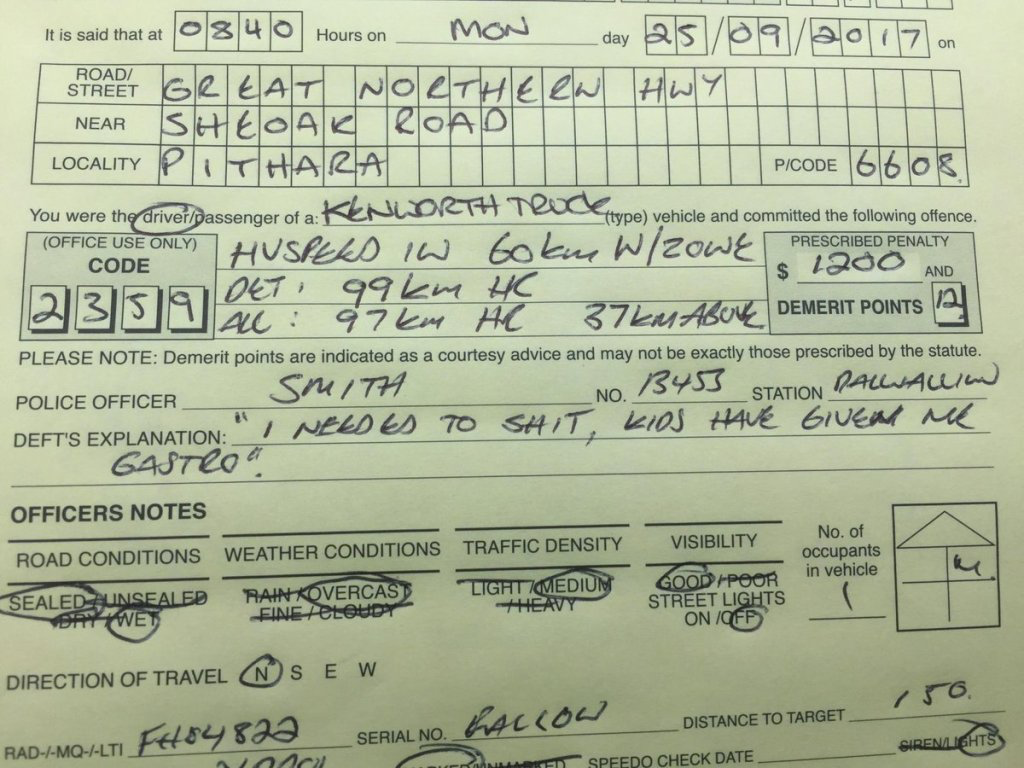 It is said that at 0840 Hours on MON day 25/09/2017 on
ROAD/ STREET GREAT NORTHERN HWY
NEAR SHEOAK ROAD
LOCALITY PITHARA P/CODE 6608
You were the driver/passenger of a: KENWORTH TRUCK (type) vehicle and committed the following offence.
(OFFICE USE ONLY) HVSPEED IN 60km W/ZONE PRESCRIBED PENALTY
CODE DET: 99km HR $ 1200 AND
2359 ALL: 97km HR 37km ABOVE DEMERIT POINTS 12
PLEASE NOTE: Demerit points are indicated as a courtesy advice and may not be exactly those prescribed by the statute.
POLICE OFFICER SMITH NO. 13453 STATION DALWALLINU
DEFT'S EXPLANATION: "I NEEDED TO SHIT, KIDS HAVE GIVEN ME
GASTRO".
OFFICERS NOTES
ROAD CONDITIONS WEATHER CONDITIONS TRAFFIC DENSITY VISIBILITY No. of occupants in vehicle
SEALED/UNSEALED RAIN/OVERCAST LIGHT/MEDIUM GOOD/POOR 1
DRY/WET FINE/CLOUDY /HEAVY STREET LIGHTS
ON/OFF
DIRECTION OF TRAVEL N S E W
RAD-/-MQ-/-LTI FH04822 SERIAL NO. DISTANCE TO TARGET 150.
SPEEDO CHECK DATE SIREN/LIGHTS